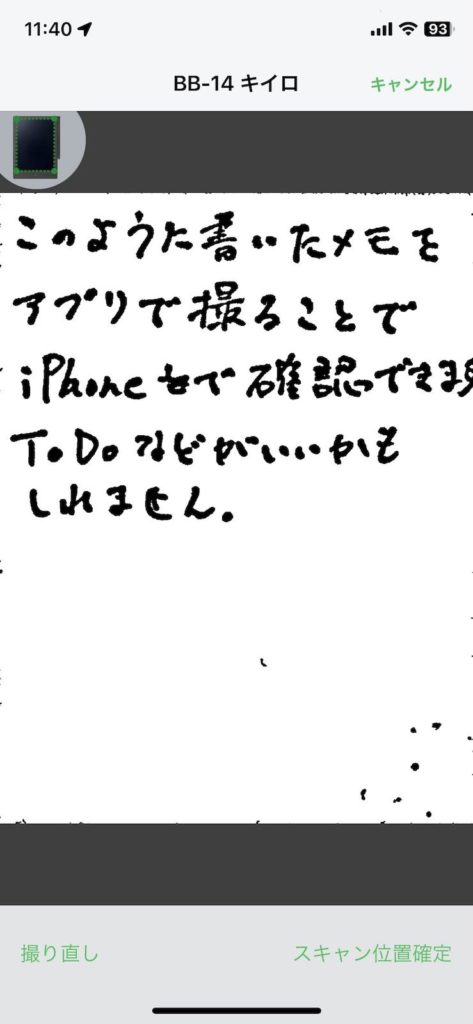 11:40
93
BB-14 キイロ
キャンセル
このように書いたメモを
アプリで撮ることで
iPhone上で確認できます
ToDoなどがいいかも
しれません。
撮り直し
スキャン位置確定